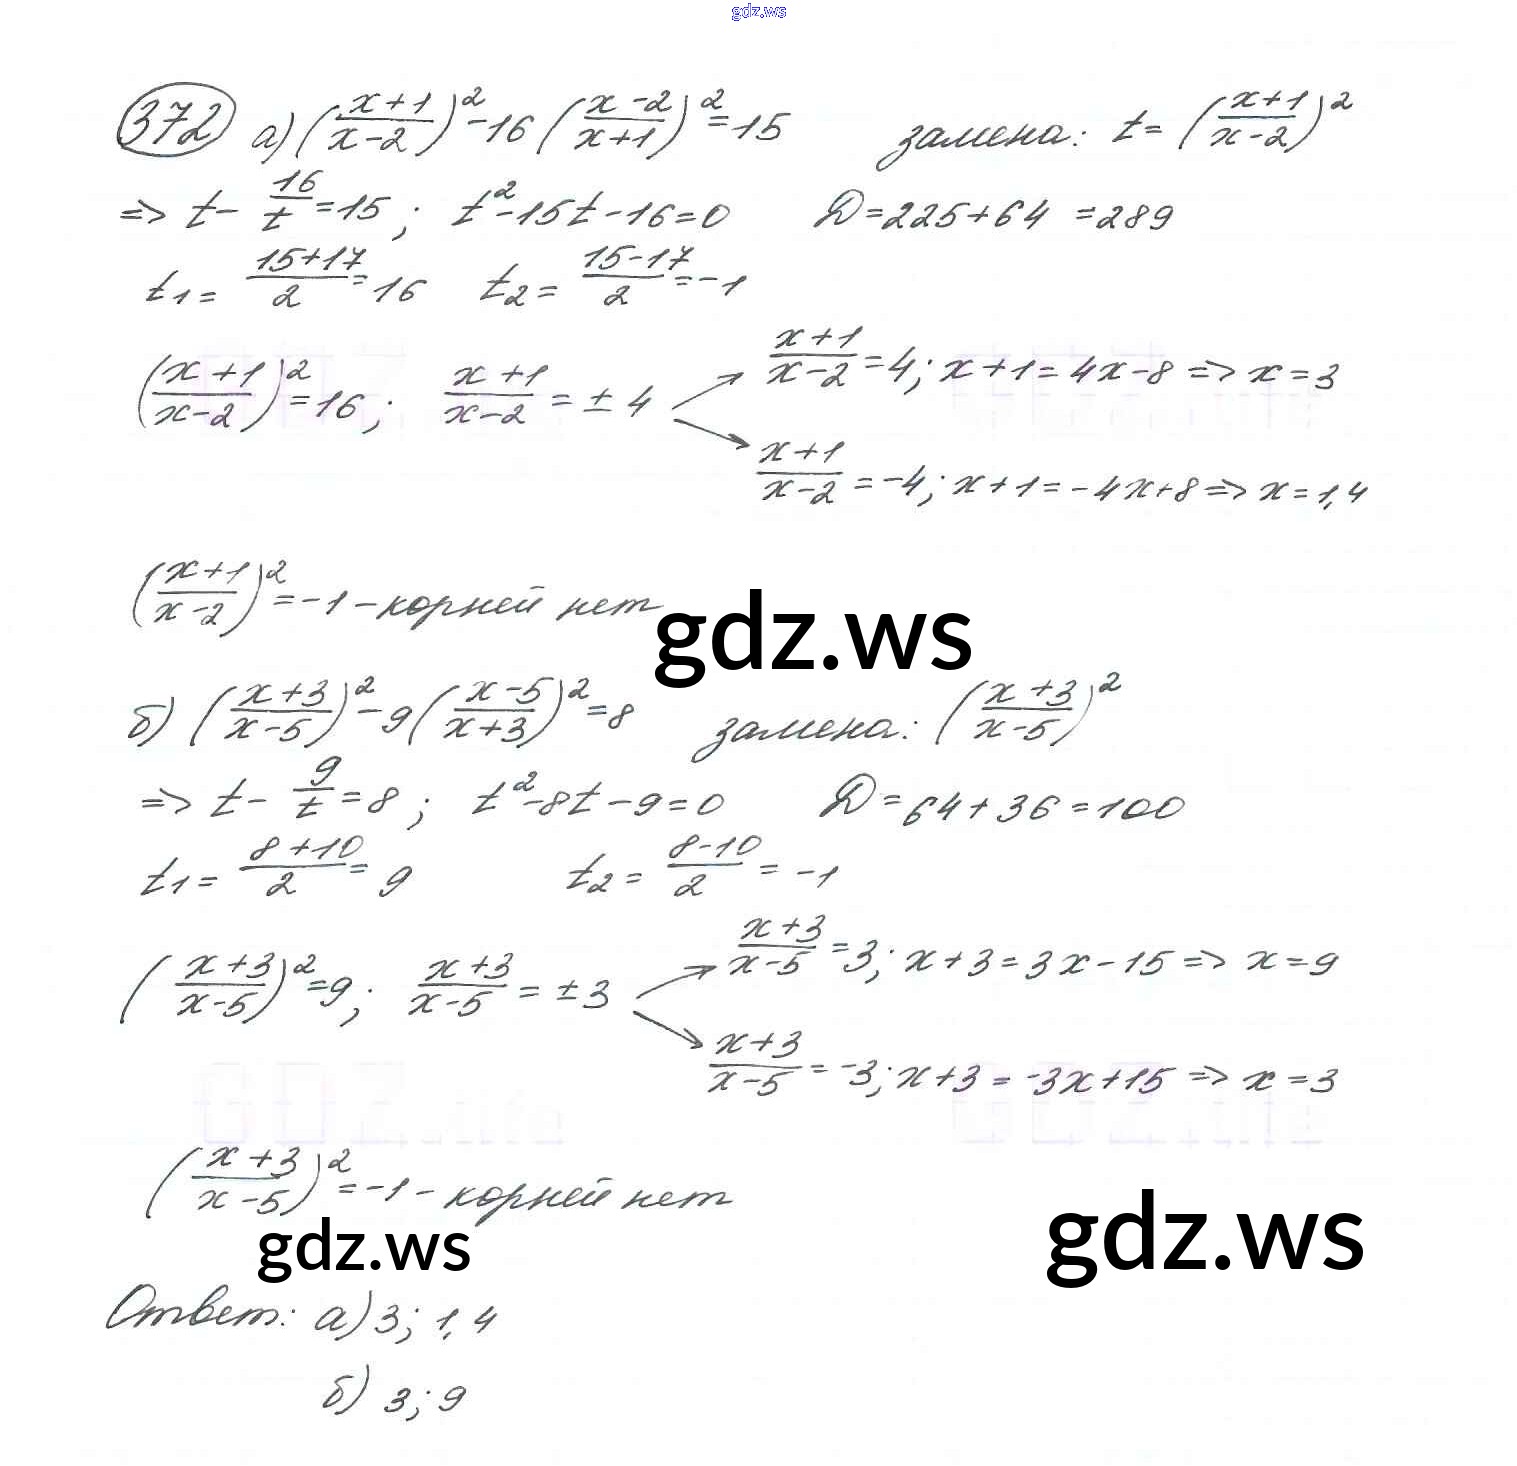 gdz.ws
372 а) ((x+1)/(x-2))² - 16 ((x-2)/(x+1))² = 15 замена: t = ((x+1)/(x-2))²
=> t - 16/t = 15; t² - 15t - 16 = 0 D = 225 + 64 = 289
t₁ = (15+17)/2 = 16 t₂ = (15-17)/2 = -1
((x+1)/(x-2))² = 16; (x+1)/(x-2) = ± 4
(x+1)/(x-2) = 4; x + 1 = 4x - 8 => x = 3
(x+1)/(x-2) = -4; x + 1 = -4x + 8 => x = 1,4
((x+1)/(x-2))² = -1 - корней нет
gdz.ws
б) ((x+3)/(x-5))² - 9 ((x-5)/(x+3))² = 8 замена: ((x+3)/(x-5))²
=> t - 9/t = 8; t² - 8t - 9 = 0 D = 64 + 36 = 100
t₁ = (8+10)/2 = 9 t₂ = (8-10)/2 = -1
((x+3)/(x-5))² = 9; (x+3)/(x-5) = ± 3
(x+3)/(x-5) = 3; x + 3 = 3x - 15 => x = 9
(x+3)/(x-5) = -3; x + 3 = -3x + 15 => x = 3
((x+3)/(x-5))² = -1 - корней нет
gdz.ws
gdz.ws
Ответ: а) 3; 1,4
б) 3; 9